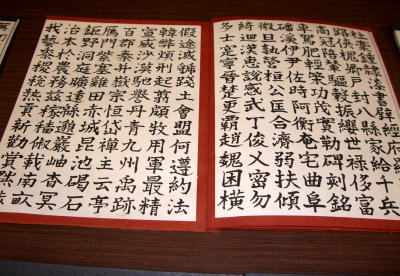 杜稾鍾隸漆書壁經府羅將相
路俠槐卿戶封八縣家給千兵
高冠陪輦驅轂振纓世祿侈富
車駕肥輕策功茂實勒碑刻銘
磻溪伊尹佐時阿衡奄宅曲阜
微旦孰營桓公匡合濟弱扶傾
綺迴漢惠說感武丁俊乂密勿
多士寔寧晉楚更霸趙魏困橫
假途滅虢踐土會盟何遵約法
韓弊煩刑起翦頗牧用軍最精
宣威沙漠馳譽丹青九州禹跡
百郡秦并嶽宗恒岱禪主云亭
雁門紫塞雞田赤城昆池碣石
鉅野洞庭曠遠綿邈巖岫杳冥
治本於農務茲稼穡俶載南畝
我藝黍稷稅熟貢新勸賞黜陟